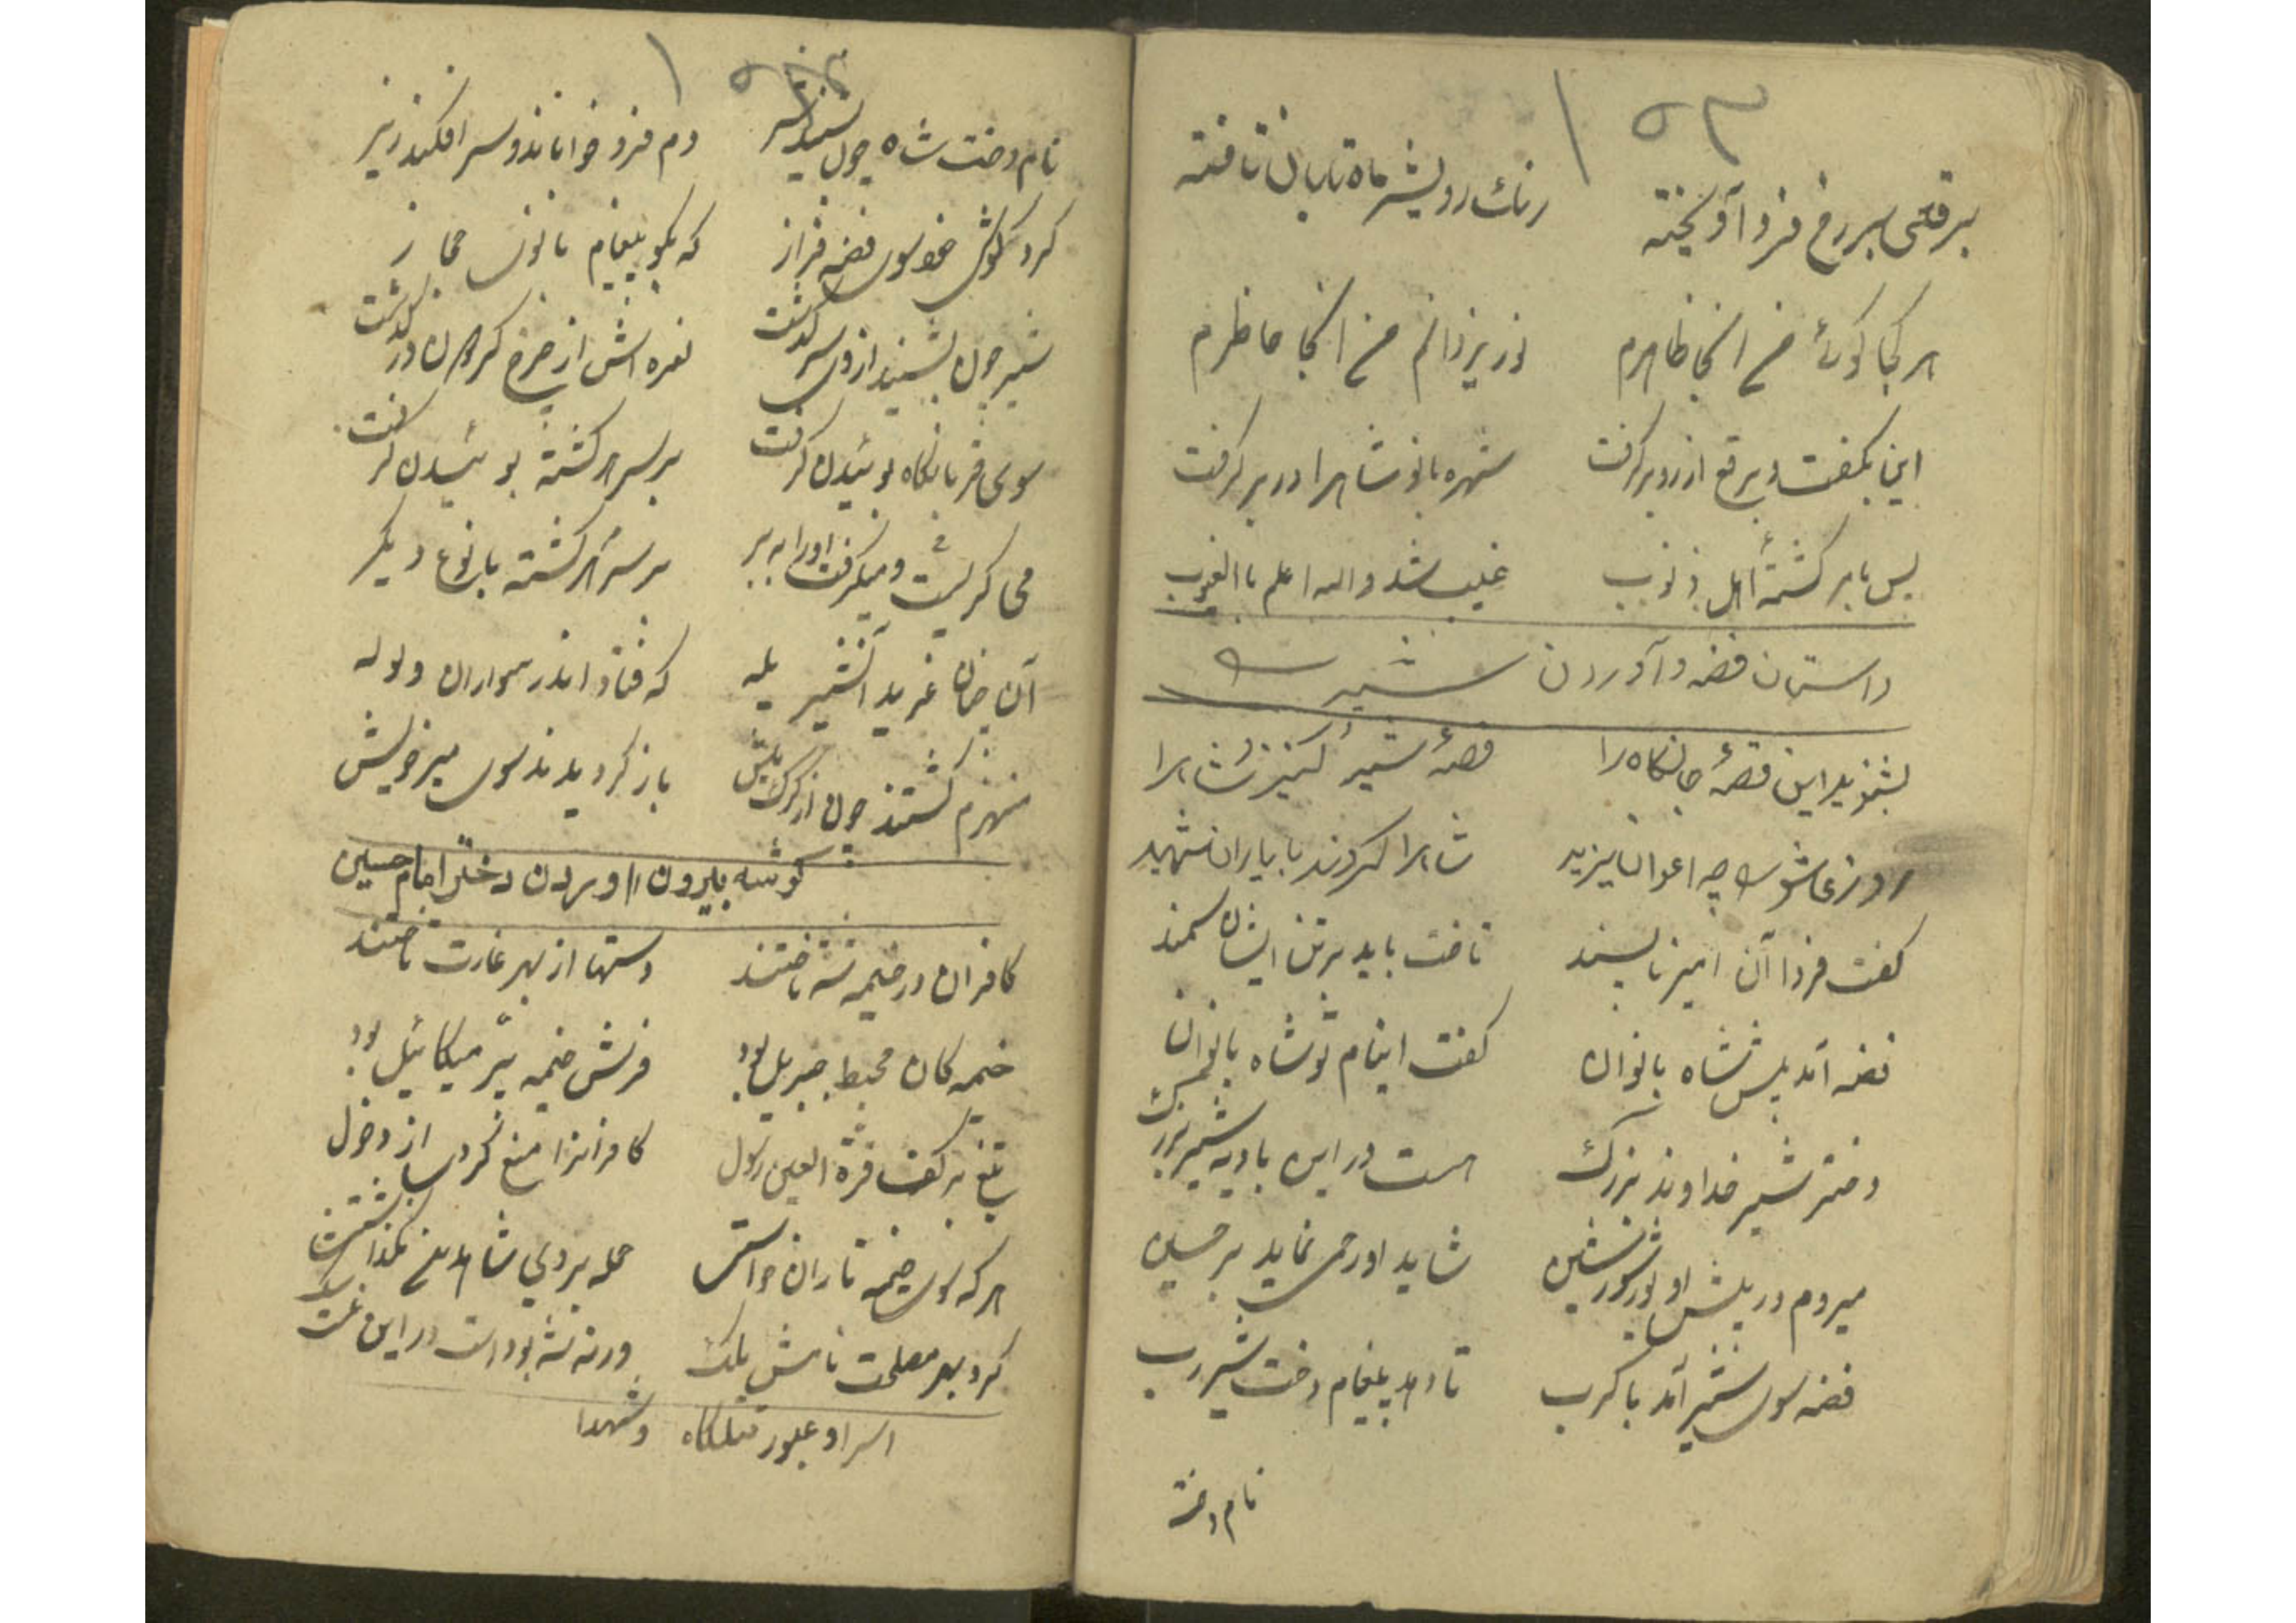 ۱۵۳
برقعی بر رخ فرو آویخته رنگ رویش ماه تابان تافته
هر کجا کوئ من آنجا ظاهرم نور یزدانم من آنجا حاظرم
این بکفت و برقع از رو بر کرفت شهره بانو شاهرا در بر کرفت
پس بابر کشتۀ اهل ذنوب غیب شد واله اعلم باالغیوب
داستان فضه و آوردن شیر
بشنوید این قصۀ جانکاه را قصۀ شیر و کنیز شاهرا
روز عاشورا چه اعوان یزید شاهرا کردند با یاران شهید
کفت فردا آن امیر ناپسند تاخت باید بر تن ایشان سمند
فضه آمد پیش شاه بانوان کفت اینام تو شاه بانوان
دختر شیر خداوند بزرک هست در این بادیه شیر بزرک
میروم در پیش او با شور و شین شاید او رحمی نماید بر حسین
فضه سوی شیر آمد با کرب تا دهد پیغام دخت شیر رب
نام دخت
نام دخت شاه چون بشنید شیر دم فرو خواباند و سر افکند زیر
کرد کوش خود سوی فضه فراز که بکو پیغام بانوی حجاز
شیر چون بشنید از وی سرکذشت نعره اش از چرخ کردون در کذشت
سوی قربانکاه بوئیدن کرفت بر سر هر کشته بوئیدن کرفت
می کریست و میکرفت اورا به بر بر سر هر کشته با نوع دیکر
آن چنان غرید آنشیر یله که فتاد اندر سواران ولوله
منهزم کشتند چون از کرک میش باز کردیدند سوی میر خویش
کوشه بیرون اوردن دختر امام حسین
کافران در خیمۀ شه تاختند دستها از بهر غارت تاختند
خیمه کان محبط جبریل بود فرش خیمه پر میکائیل بود
تیغ بر کف قرة العین رسول کافرانرا منع کردی از دخول
هر که سوی خیمه تازان خواستی حمله بردی شاهدین نکذاشتی
کرد بهر مصلحت نامش یلک ورنه شه بود است در این غمت
اسرا و عبور قتلکاه و شهدا